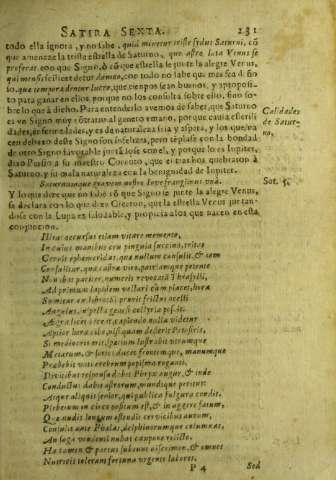 SATIRA SEXTA. 231
todo ella ignora, y no sabe, quid minetur triste sidus Saturni, cō
que amenaze la triste estrella de Saturno, quo astro læta Venus se
proferat, con que Signo, ò cō que estrella se junte la alegre Venus,
qui mensis
que tempora dentur lucro, que tienpos sean buenos, y
to para ganar en ellos, porque no los consulta sobre ello, sino so-
bre lo que à dicho. Para entenderlo avemos de saber, que Saturno
es vn Signo muy cōtrario al genero vmano, porque causa esterili
dades, enfermedades, y es de naturaleza fria y aspera, y los que
en debaxo deste Signo son infelizes, pero tēplase con la bondad
de otro Signo favorable junta Jose con el, y porque lo es Iupiter,
dixo Persio a su maestro Cornuto, que el
Saturno, y su mala naturaleza con la benignidad de Iupiter.
Saturnumque gravem nostro Iove frangimus una.
Y lo que dize que no sabe cō que Signo se junte la alegre Venus,
se declara con lo que dize Ciceron, que la estrella Venus jun tan-
dose con la Luna es saludable, y propicia a los que nacen en esta
conjuncion.
Calidades
de Satur-
no.
Sat. 5.
Illius occursus etiam vitare memento,
In cuius manibus ceu pinguia succina, tritas
Cernis ephemeridas, quæ nullum consulit, & iam
Consulitur, quæ castra viro, patriamque petente
Non ibit pariter, numeris revocata
Ad primum lapidem vectari cùm placet, hora
Sumitur ex libro: si prurit frictus ocelli
Angulus, inspecta genesi collyria poscit.
Ægra licèt iaceat, capiendo nulla videtur
Aptior hora cibo, nisi quam dederit Petosiris,
Si mediocris erit, spatium lustrabit utrumque
Metarum, & sortes ducet frontemque, manumque
Præbebit vati crebrum poppysma roganti.
Divitibus responsa dabit Phryx augur, & inde
Conductus dabit astrorum, mundique peritus:
Atque aliquis senior, qui publica fulgura condit.
Plebeium in circo positum est, & in aggere fatum,
Quæ nudis longum ostendit cervicibus aurum,
Consulit ante Phalas, delphinorumque columnas,
An saga vendenti nubat caupone relicto.
Hæ tamen & partus subeunt discrimen, & omnes
Nutricis tolerant fortuna urgente labores.
P 4 Sed